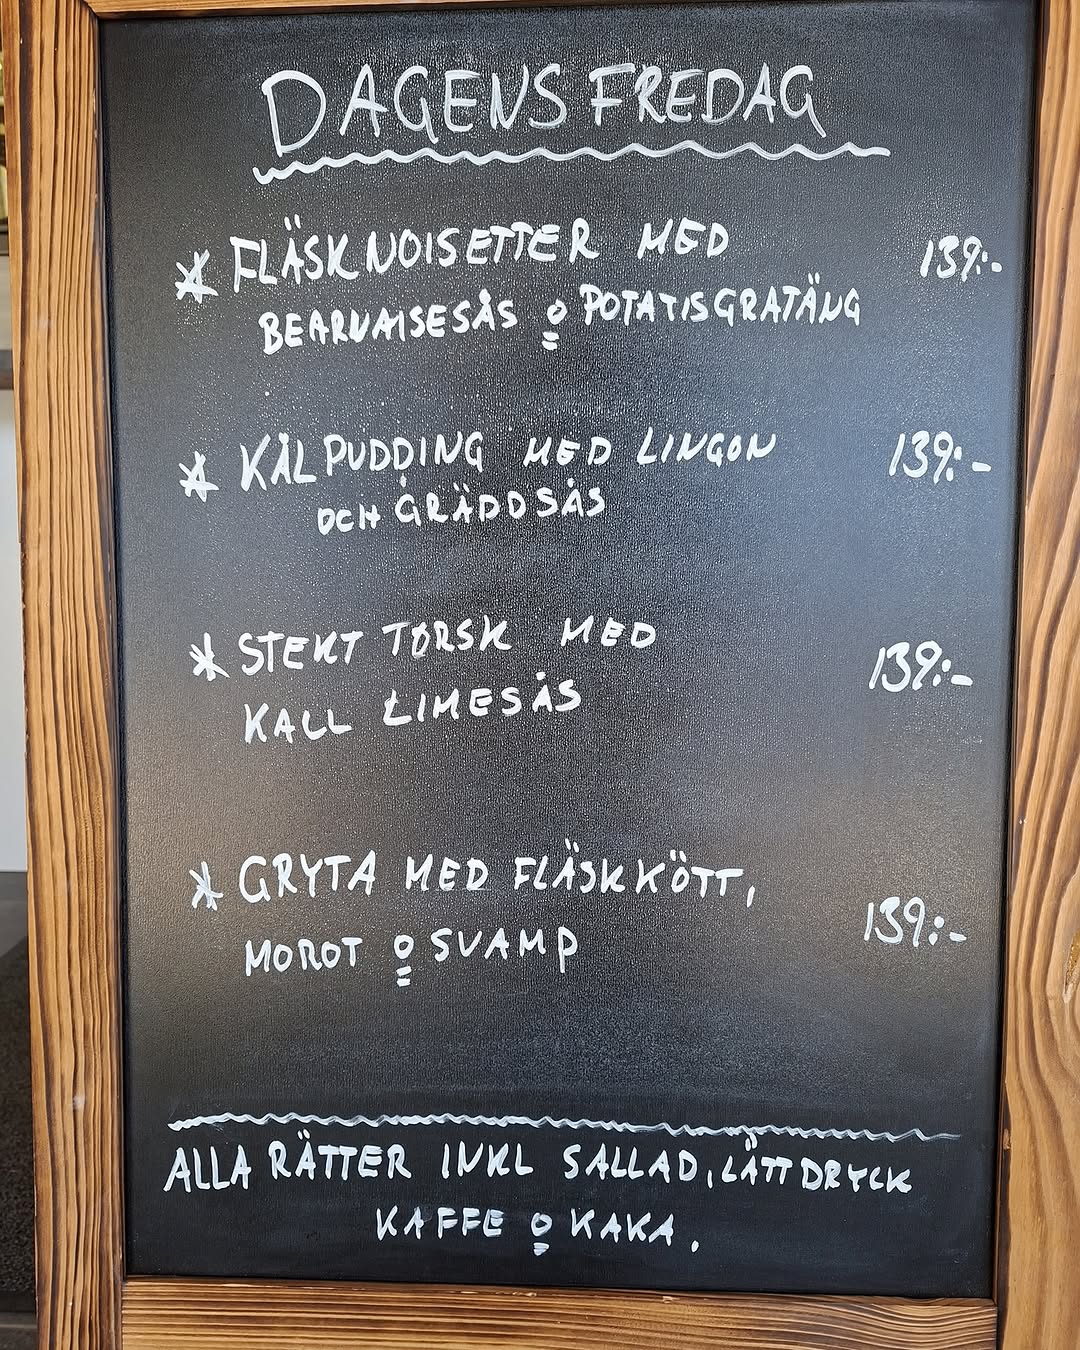 DAGENS FREDAG
* FLÄSKNOISETTER MED 139:-
BEARNAISESÅS o POTATISGRATÄNG
* KÅLPUDDING MED LINGON 139:-
OCH GRÄDDSÅS
* STEKT TORSK MED 139:-
KALL LIMESÅS
* GRYTA MED FLÄSKKÖTT,
MOROT o SVAMP 139:-
ALLA RÄTTER INKL SALLAD, LÄTTDRYCK
KAFFE o KAKA.